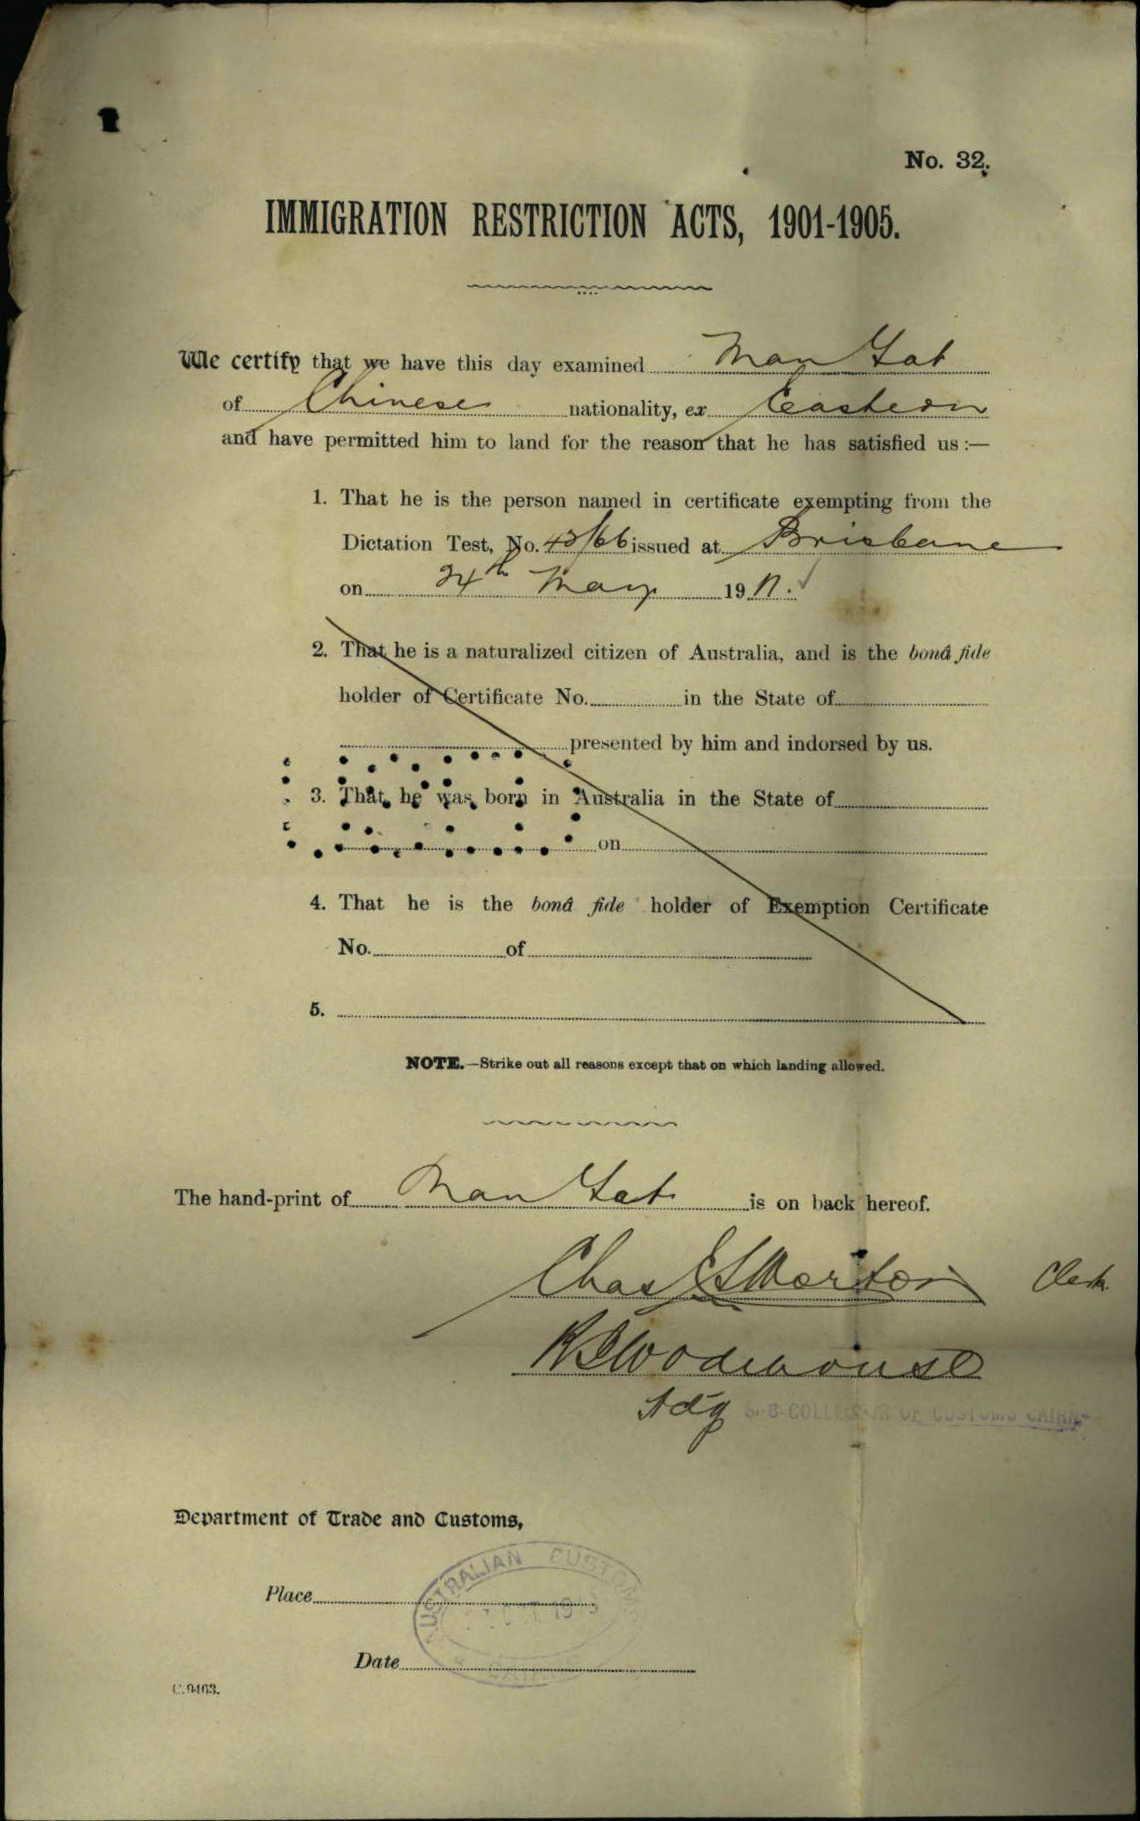 No. 32.
IMMIGRATION RESTRICTION ACTS, 1901-1905.
We certify that we have this day examined Man Gat
of Chinese nationality, ex Eastern
and have permitted him to land for the reason that he has satisfied us :—
1. That he is the person named in certificate exempting from the
Dictation Test, No. 43/66 issued at Brisbane
on 24th May 1911.
2. That he is a naturalized citizen of Australia, and is the bonâ fide
holder of Certificate No. in the State of
presented by him and indorsed by us.
3. That he was born in Australia in the State of
on
4. That he is the bonâ fide holder of Exemption Certificate
No. of
5.
NOTE.—Strike out all reasons except that on which landing allowed.
The hand-print of Man Gat is on back hereof.
Chas Morton Clerk
Woodhouse
Adg SUB-COLLECTOR OF CUSTOMS CAIRNS
Department of Trade and Customs,
AUSTRALIAN CUSTOMS
Place
Date
C.9403.